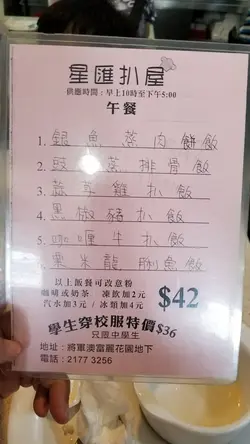 星匯扒屋
供應時間：早上10時至下午5:00
午餐
1. 銀魚蒸肉餅飯
2. 豉汁蒸排骨飯
3. 蒜茸雞扒飯
4. 黑椒豬扒飯
5. 咖喱牛扒飯
粟米龍脷魚飯
以上飯餐可改意粉
咖啡或奶茶 凍飲加2元
汽水加3元 / 冰類加4元
$42
學生穿校服特價$36
只限中學生
地址：將軍澳富麗花園地下
電話：2177 3256